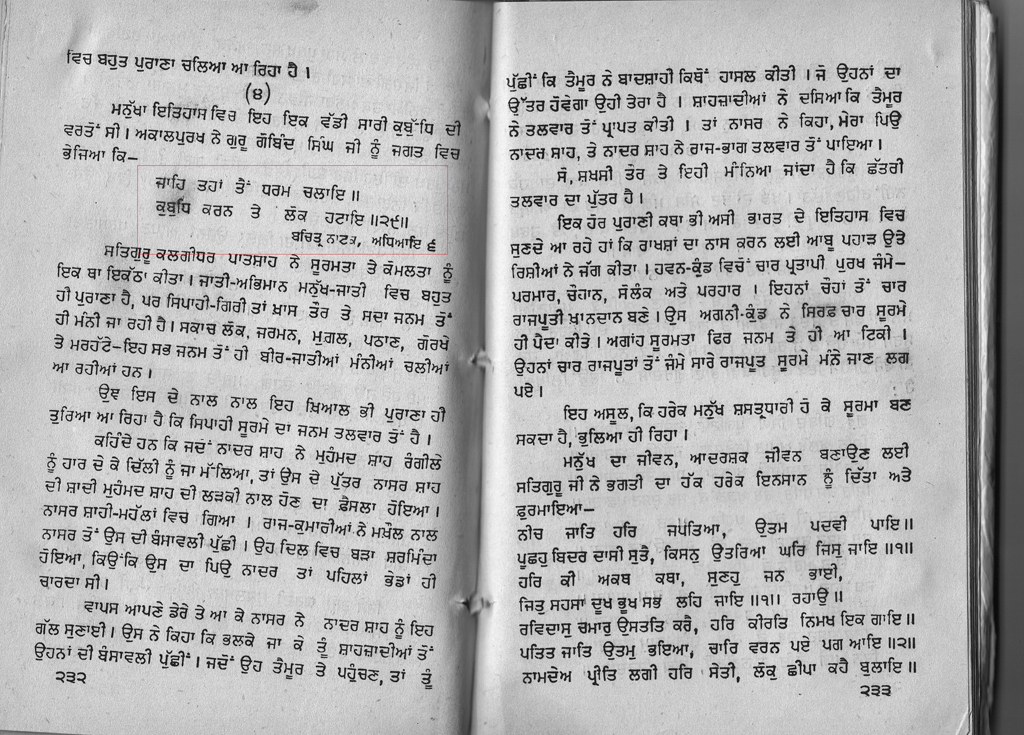 ਵਿਚ ਬਹੁਤ ਪੁਰਾਣਾ ਚਲਿਆ ਆ ਰਿਹਾ ਹੈ ।
(੪)
ਮਨੁੱਖਾ ਇਤਿਹਾਸ ਵਿਰ ਇਹ ਇਕ ਵੱਡੀ ਸਾਰੀ ਕੁਬੁੱਧਿ ਦੀ
ਵਰਤੋਂ ਸੀ । ਅਕਾਲਪੁਰਖ ਨੇ ਗੁਰੂ ਗੋਬਿੰਦ ਸਿੰਘ ਜੀ ਨੂੰ ਜਗਤ ਵਿਚ
ਭੇਜਿਆ ਕਿ—
ਜਾਹਿ ਤਹਾਂ ਤੈਂ ਧਰਮ ਚਲਾਇ ॥
ਕੁਬੁਧਿ ਕਰਨ ਤੇ ਲੋਕ ਹਟਾਇ ॥੨੯॥
ਬਚਿਤ੍ਰ ਨਾਟਕ, ਅਧਿਆਇ ੬
ਸਤਿਗੁਰੂ ਕਲਗੀਧਰ ਪਾਤਸ਼ਾਹ ਨੇ ਸੂਰਮਤਾ ਤੇ ਕੋਮਲਤਾ ਨੂੰ
ਇਕ ਥਾ ਇਕੱਠਾ ਕੀਤਾ । ਜਾਤੀ-ਅਭਿਮਾਨ ਮਨੁੱਖ-ਜਾਤੀ ਵਿਚ ਬਹੁਤ
ਹੀ ਪੁਰਾਣਾ ਹੈ, ਪਰ ਸਿਪਾਹੀ-ਗਿਰੀ ਤਾਂ ਖ਼ਾਸ ਤੌਰ ਤੇ ਸਦਾ ਜਨਮ ਤੋਂ
ਹੀ ਮੰਨੀ ਜਾ ਰਹੀ ਹੈ। ਸਕਾਚ ਲੋਕ, ਜਰਮਨ, ਮੁਗ਼ਲ, ਪਠਾਣ, ਗੋਰਖੇ
ਤੇ ਮਰਹੱਟੇ—ਇਹ ਸਭ ਜਨਮ ਤੋਂ ਹੀ ਬੀਰ-ਜਾਤੀਆਂ ਮੰਨੀਆਂ ਚਲੀਆਂ
ਆ ਰਹੀਆਂ ਹਨ ।
ਉਞ ਇਸ ਦੇ ਨਾਲ ਨਾਲ ਇਹ ਖ਼ਿਆਲ ਭੀ ਪੁਰਾਣਾ ਹੀ
ਤੁਰਿਆ ਆ ਰਿਹਾ ਹੈ ਕਿ ਸਿਪਾਹੀ ਸੂਰਮੇ ਦਾ ਜਨਮ ਤਲਵਾਰ ਤੋਂ ਹੈ ।
ਕਹਿੰਦੇ ਹਨ ਕਿ ਜਦੋਂ ਨਾਦਰ ਸ਼ਾਹ ਨੇ ਮੁਹੰਮਦ ਸ਼ਾਹ ਰੰਗੀਲੇ
ਨੂੰ ਹਾਰ ਦੇ ਕੇ ਦਿੱਲੀ ਨੂੰ ਜਾ ਮੱਲਿਆ, ਤਾਂ ਉਸ ਦੇ ਪੁੱਤਰ ਨਾਸਰ ਸ਼ਾਹ
ਦੀ ਸ਼ਾਦੀ ਮੁਹੰਮਦ ਸ਼ਾਹ ਦੀ ਲੜਕੀ ਨਾਲ ਹੋਣ ਦਾ ਫ਼ੈਸਲਾ ਹੋਇਆ ।
ਨਾਸਰ ਸ਼ਾਹੀ-ਮਹੱਲਾਂ ਵਿਚ ਗਿਆ । ਰਾਜ-ਕੁਮਾਰੀਆਂ ਨੇ ਮਖ਼ੌਲ ਨਾਲ
ਨਾਸਰ ਤੋਂ ਉਸ ਦੀ ਬੰਸਾਵਲੀ ਪੁੱਛੀ । ਉਹ ਦਿਲ ਵਿਚ ਬੜਾ ਸ਼ਰਮਿੰਦਾ
ਹੋਇਆ, ਕਿਉਂਕਿ ਉਸ ਦਾ ਪਿਉ ਨਾਦਰ ਤਾਂ ਪਹਿਲਾਂ ਭੇਡਾਂ ਹੀ
ਚਾਰਦਾ ਸੀ ।
ਵਾਪਸ ਆਪਣੇ ਡੇਰੇ ਤੇ ਆ ਕੇ ਨਾਸਰ ਨੇ ਨਾਦਰ ਸ਼ਾਹ ਨੂੰ ਇਹ
ਗੱਲ ਸੁਣਾਈ। ਉਸ ਨੇ ਕਿਹਾ ਕਿ ਭਲਕੇ ਜਾ ਕੇ ਤੂੰ ਸ਼ਾਹਜ਼ਾਦੀਆਂ ਤੋਂ
ਉਹਨਾਂ ਦੀ ਬੰਸਾਵਲੀ ਪੁੱਛੀਂ । ਜਦੋਂ ਉਹ ਤੈਮੂਰ ਤੇ ਪਹੁੰਚਣ, ਤਾਂ ਤੂੰ
੨੩੨
ਪੁੱਛੀਂ ਕਿ ਤੈਮੂਰ ਨੇ ਬਾਦਸ਼ਾਹੀ ਕਿਥੋਂ ਹਾਸਲ ਕੀਤੀ । ਜੋ ਉਹਨਾਂ ਦਾ
ਉੱਤਰ ਹੋਵੇਗਾ ਉਹੀ ਤੇਰਾ ਹੈ । ਸ਼ਾਹਜ਼ਾਦੀਆਂ ਨੇ ਦਸਿਆ ਕਿ ਤੈਮੂਰ
ਨੇ ਤਲਵਾਰ ਤੋਂ ਪ੍ਰਾਪਤ ਕੀਤੀ । ਤਾਂ ਨਾਸਰ ਨੇ ਕਿਹਾ, ਮੇਰਾ ਪਿਉ
ਨਾਦਰ ਸ਼ਾਹ, ਤੇ ਨਾਦਰ ਸ਼ਾਹ ਨੇ ਰਾਜ-ਭਾਗ ਤਲਵਾਰ ਤੋਂ ਪਾਇਆ ।
ਸੋ, ਸ਼ਖ਼ਸੀ ਤੌਰ ਤੇ ਇਹੀ ਮੰਨਿਆ ਜਾਂਦਾ ਹੈ ਕਿ ਛੱਤਰੀ
ਤਲਵਾਰ ਦਾ ਪੁੱਤਰ ਹੈ ।
ਇਕ ਹੋਰ ਪੁਰਾਣੀ ਕਥਾ ਭੀ ਅਸੀ ਭਾਰਤ ਦੇ ਇਤਿਹਾਸ ਵਿਚ
ਸੁਣਦੇ ਆ ਰਹੇ ਹਾਂ ਕਿ ਰਾਖਸ਼ਾਂ ਦਾ ਨਾਸ ਕਰਨ ਲਈ ਆਬੂ ਪਹਾੜ ਉਤੇ
ਰਿਸ਼ੀਆਂ ਨੇ ਜੱਗ ਕੀਤਾ । ਹਵਨ-ਕੁੰਡ ਵਿਚੋਂ ਚਾਰ ਪ੍ਰਤਾਪੀ ਪੁਰਖ ਜੰਮੇ—
ਪਰਮਾਰ, ਚੌਹਾਨ, ਸੋਲੰਕ ਅਤੇ ਪਰਹਾਰ । ਇਹਨਾਂ ਚੌਹਾਂ ਤੋਂ ਚਾਰ
ਰਾਜਪੂਤੀ ਖ਼ਾਨਦਾਨ ਬਣੇ । ਉਸ ਅਗਨੀ-ਕੁੰਡ ਨੇ ਸਿਰਫ਼ ਚਾਰ ਸੂਰਮੇ
ਹੀ ਪੈਦਾ ਕੀਤੇ । ਅਗਾਂਹ ਸੂਰਮਤਾ ਫਿਰ ਜਨਮ ਤੇ ਹੀ ਆ ਟਿਕੀ ।
ਉਹਨਾਂ ਚਾਰ ਰਾਜਪੂਤਾਂ ਤੋਂ ਜੰਮੇ ਸਾਰੇ ਰਾਜਪੂਤ ਸੂਰਮੇ ਮੰਨੇ ਜਾਣ ਲਗ
ਪਏ ।
ਇਹ ਅਸੂਲ, ਕਿ ਹਰੇਕ ਮਨੁੱਖ ਸ਼ਸਤ੍ਰਧਾਰੀ ਹੋ ਕੇ ਸੂਰਮਾ ਬਣ
ਸਕਦਾ ਹੈ, ਭੁਲਿਆ ਹੀ ਰਿਹਾ ।
ਮਨੁੱਖ ਦਾ ਜੀਵਨ, ਆਦਰਸ਼ਕ ਜੀਵਨ ਬਣਾਉਣ ਲਈ
ਸਤਿਗੁਰੂ ਜੀ ਨੇ ਭਗਤੀ ਦਾ ਹੱਕ ਹਰੇਕ ਇਨਸਾਨ ਨੂੰ ਦਿੱਤਾ ਅਤੇ
ਫ਼ੁਰਮਾਇਆ—
ਨੀਚ ਜਾਤਿ ਹਰਿ ਜਪਤਿਆ, ਉਤਮ ਪਦਵੀ ਪਾਇ॥
ਪੂਛਹੁ ਬਿਦਰ ਦਾਸੀ ਸੁਤੈ, ਕਿਸਨੁ ਉਤਰਿਆ ਘਰਿ ਜਿਸੁ ਜਾਇ ॥੧॥
ਹਰਿ ਕੀ ਅਕਥ ਕਥਾ, ਸੁਣਹੁ ਜਨ ਭਾਈ,
ਜਿਤੁ ਸਹਸਾ ਦੂਖ ਭੂਖ ਸਭ ਲਹਿ ਜਾਇ ॥੧॥ ਰਹਾਉ ॥
ਰਵਿਦਾਸੁ ਚਮਾਰੁ ਉਸਤਤਿ ਕਰੈ, ਹਰਿ ਕੀਰਤਿ ਨਿਮਖ ਇਕ ਗਾਇ॥
ਪਤਿਤ ਜਾਤਿ ਉਤਮੁ ਭਇਆ, ਚਾਰਿ ਵਰਨ ਪਏ ਪਗ ਆਇ॥੨॥
ਨਾਮਦੇਅ ਪ੍ਰੀਤਿ ਲਗੀ ਹਰਿ ਸੇਤੀ, ਲੋਕੁ ਛੀਪਾ ਕਹੈ ਬੁਲਾਇ॥
੨੩੩